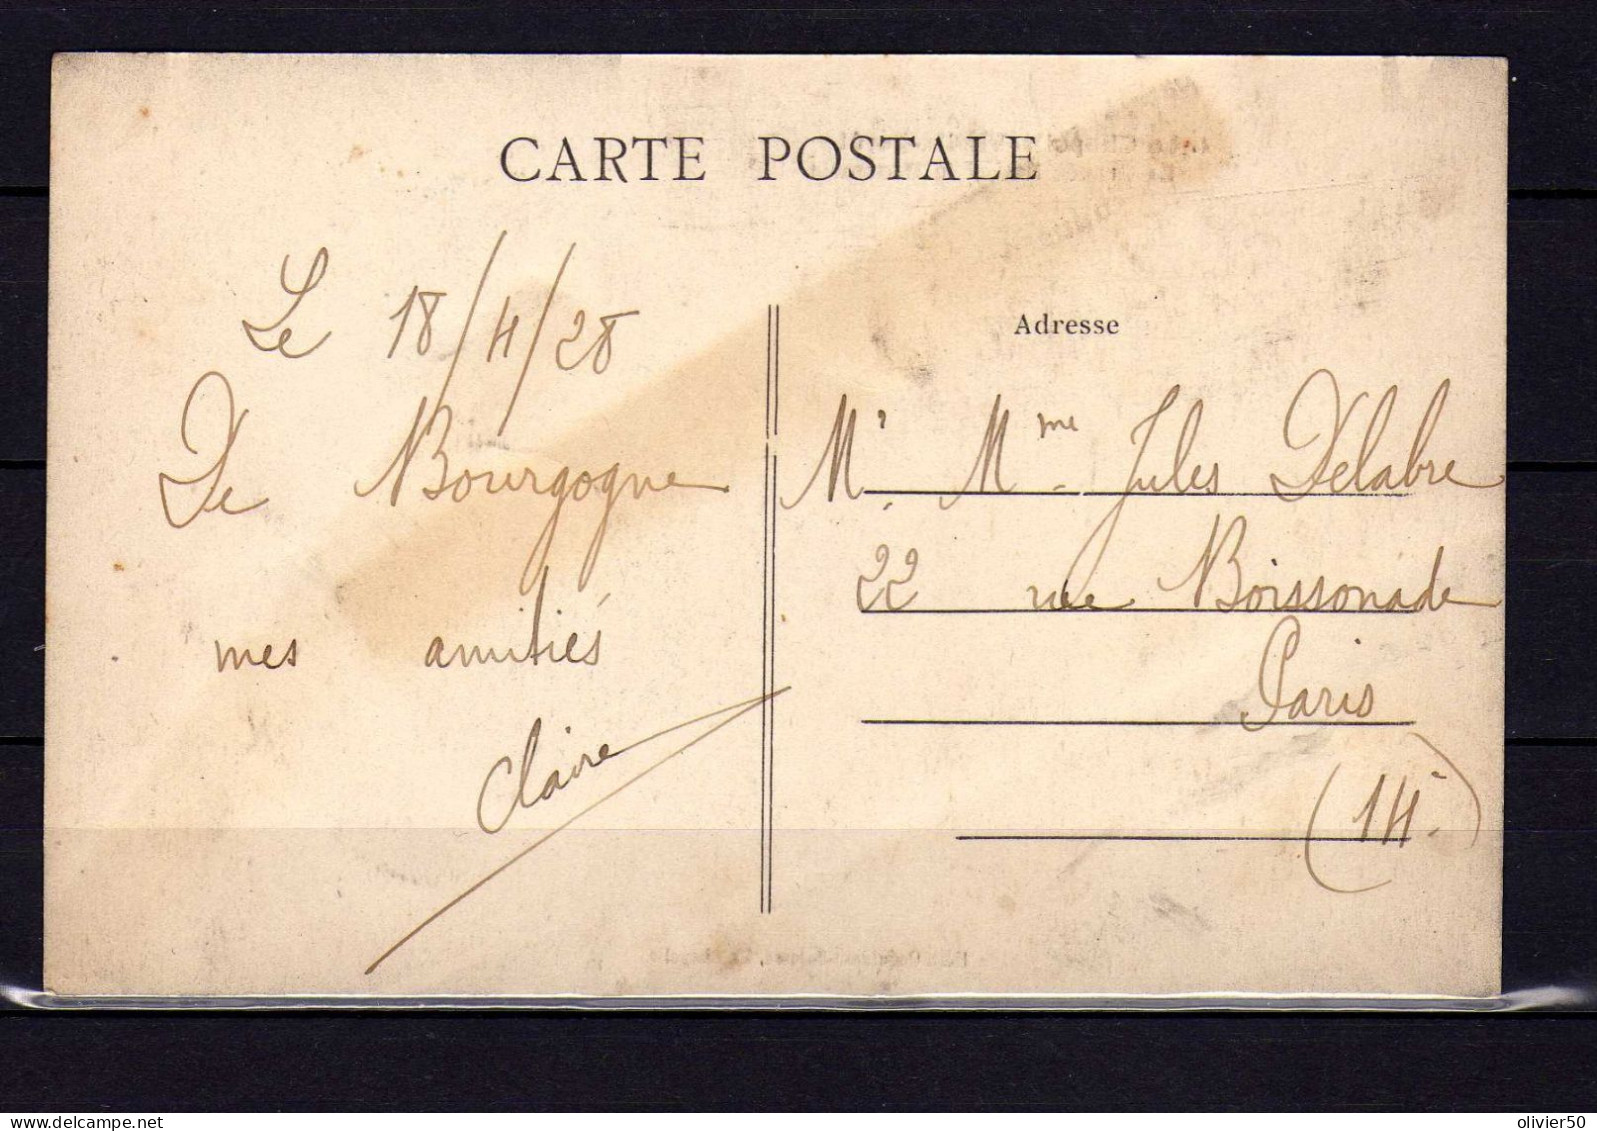 CARTE POSTALE
Le 18/4/28
De Bourgogne
mes amitiés
Claire
Adresse
Mr Mme Jules Delabre
22 rue Boissonade
Paris
(14.)
olivier50